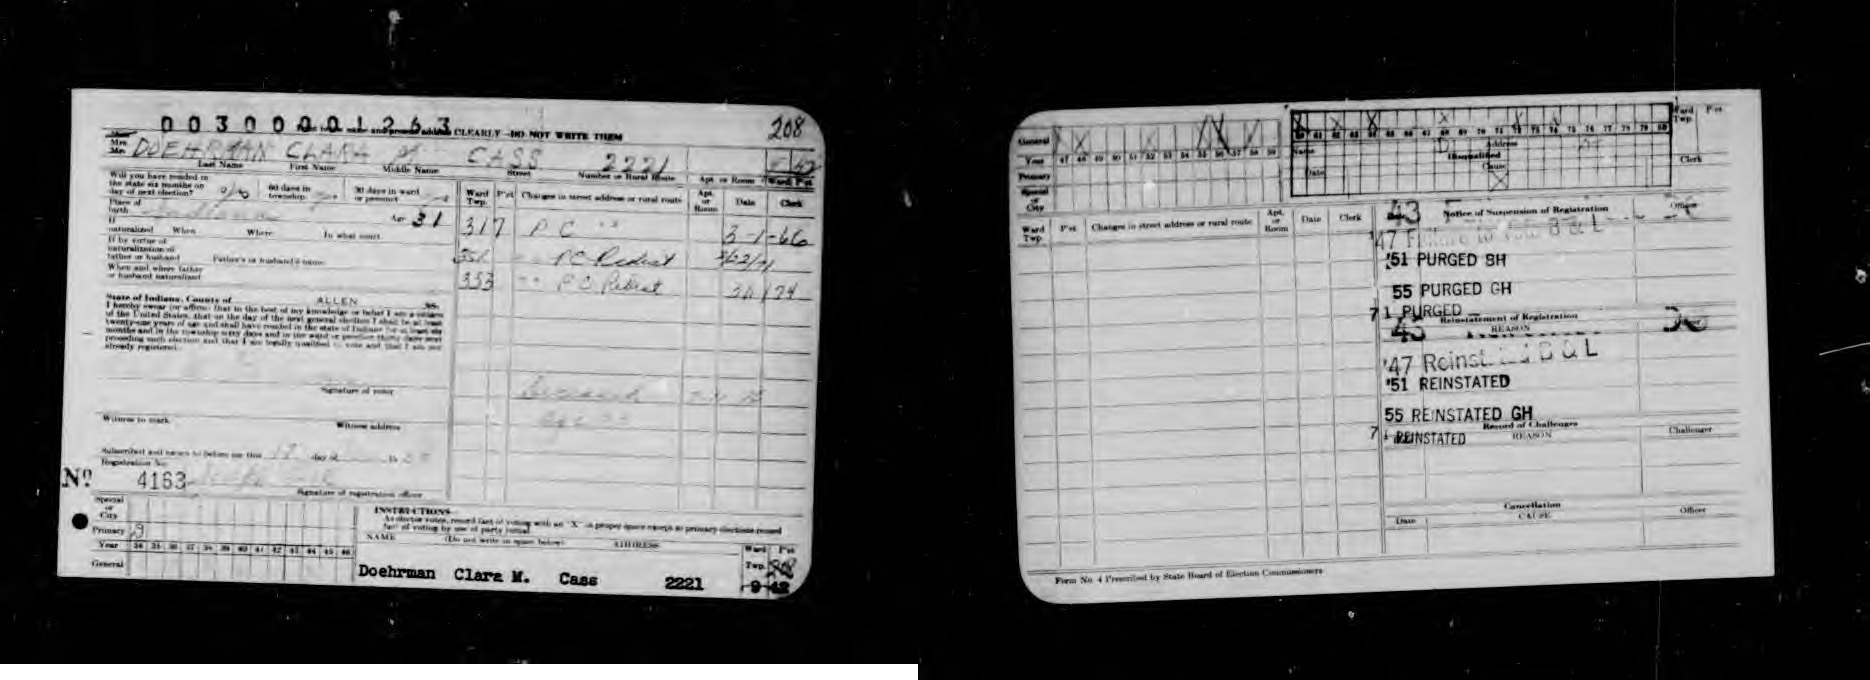 00300001263 CLEARLY—DO NOT WRITE THEM 208
Mrs. DOEHRMAN CLARA M CASS 2221
Last Name First Name Middle Name Street Number or Rural Route Apt. or Room Ward P'ct
Will you have resided in
the state six months on
day of next election? 60 days in
township 30 days in ward
or precinct
Place of
birth Indiana Age 31
If
naturalized When Where In what court
If by virtue of
naturalization of
father or husband Father's or husband's name
When and where father
or husband naturalized
State of Indiana, County of ALLEN ss.
I hereby swear (or affirm) that to the best of my knowledge or belief I am a citizen
of the United States, that on the day of the next general election I shall be at least
twenty-one years of age and shall have resided in the state of Indiana for at least six
months and in the township sixty days and in the ward or precinct thirty days next
preceding such election and that I am legally qualified to vote and that I am not
already registered.
Signature of voter
Witness to mark Witness address
Subscribed and sworn to before me this 18 day of
Registration No.
No. 4163
Signature of registration officer
Ward
Twp. P'ct Changes in street address or rural route Apt.
or
Room Date Clerk
317 P C 3-1-66
351 P C Redist
353 P C Redist
Special
or
City
Primary
Year 34 35 36 37 38 39 40 41 42 43 44 45 46
General
INSTRUCTIONS
As elector votes, record fact of voting with an "X" in proper space except in primary elections record
fact of voting by use of party initial
NAME (Do not write in space below) ADDRESS Ward
Twp. P'ct
Doehrman Clara M. Cass 2221 9-42
General X X X X X X
Year 47 48 49 50 51 52 53 54 55 56 57 58 59
Primary
Special
or
City
60 61 62 63 64 65 66 67 68 69 70 71 72 73 74 75 76 77 78 79 80
Name Address
Disqualified
Cause
Date
Ward
Twp. P'ct
Clerk
Ward
Twp. P'ct Changes in street address or rural route Apt.
or
Room Date Clerk
43 Notice of Suspension of Registration Officer
'47 Failure to Vote B & L
'51 PURGED BH
55 PURGED GH
71 PURGED
Reinstatement of Registration
REASON
'47 Reinstated B & L
'51 REINSTATED
55 REINSTATED GH
Record of Challenges
71 REINSTATED REASON Challenger
Cancellation
Date CAUSE Officer
Form No. 4 Prescribed by State Board of Election Commissioners